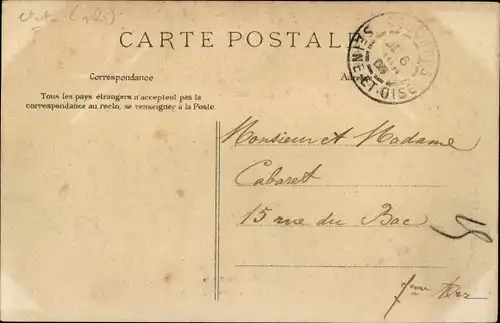 CARTE POSTALE
Correspondance
Tous les pays étrangers n'acceptent pas la
correspondance au recto, se renseigner à la Poste.
SEINE-ET-OISE
Monsieur et Madame
Cabaret
15 rue du Bac